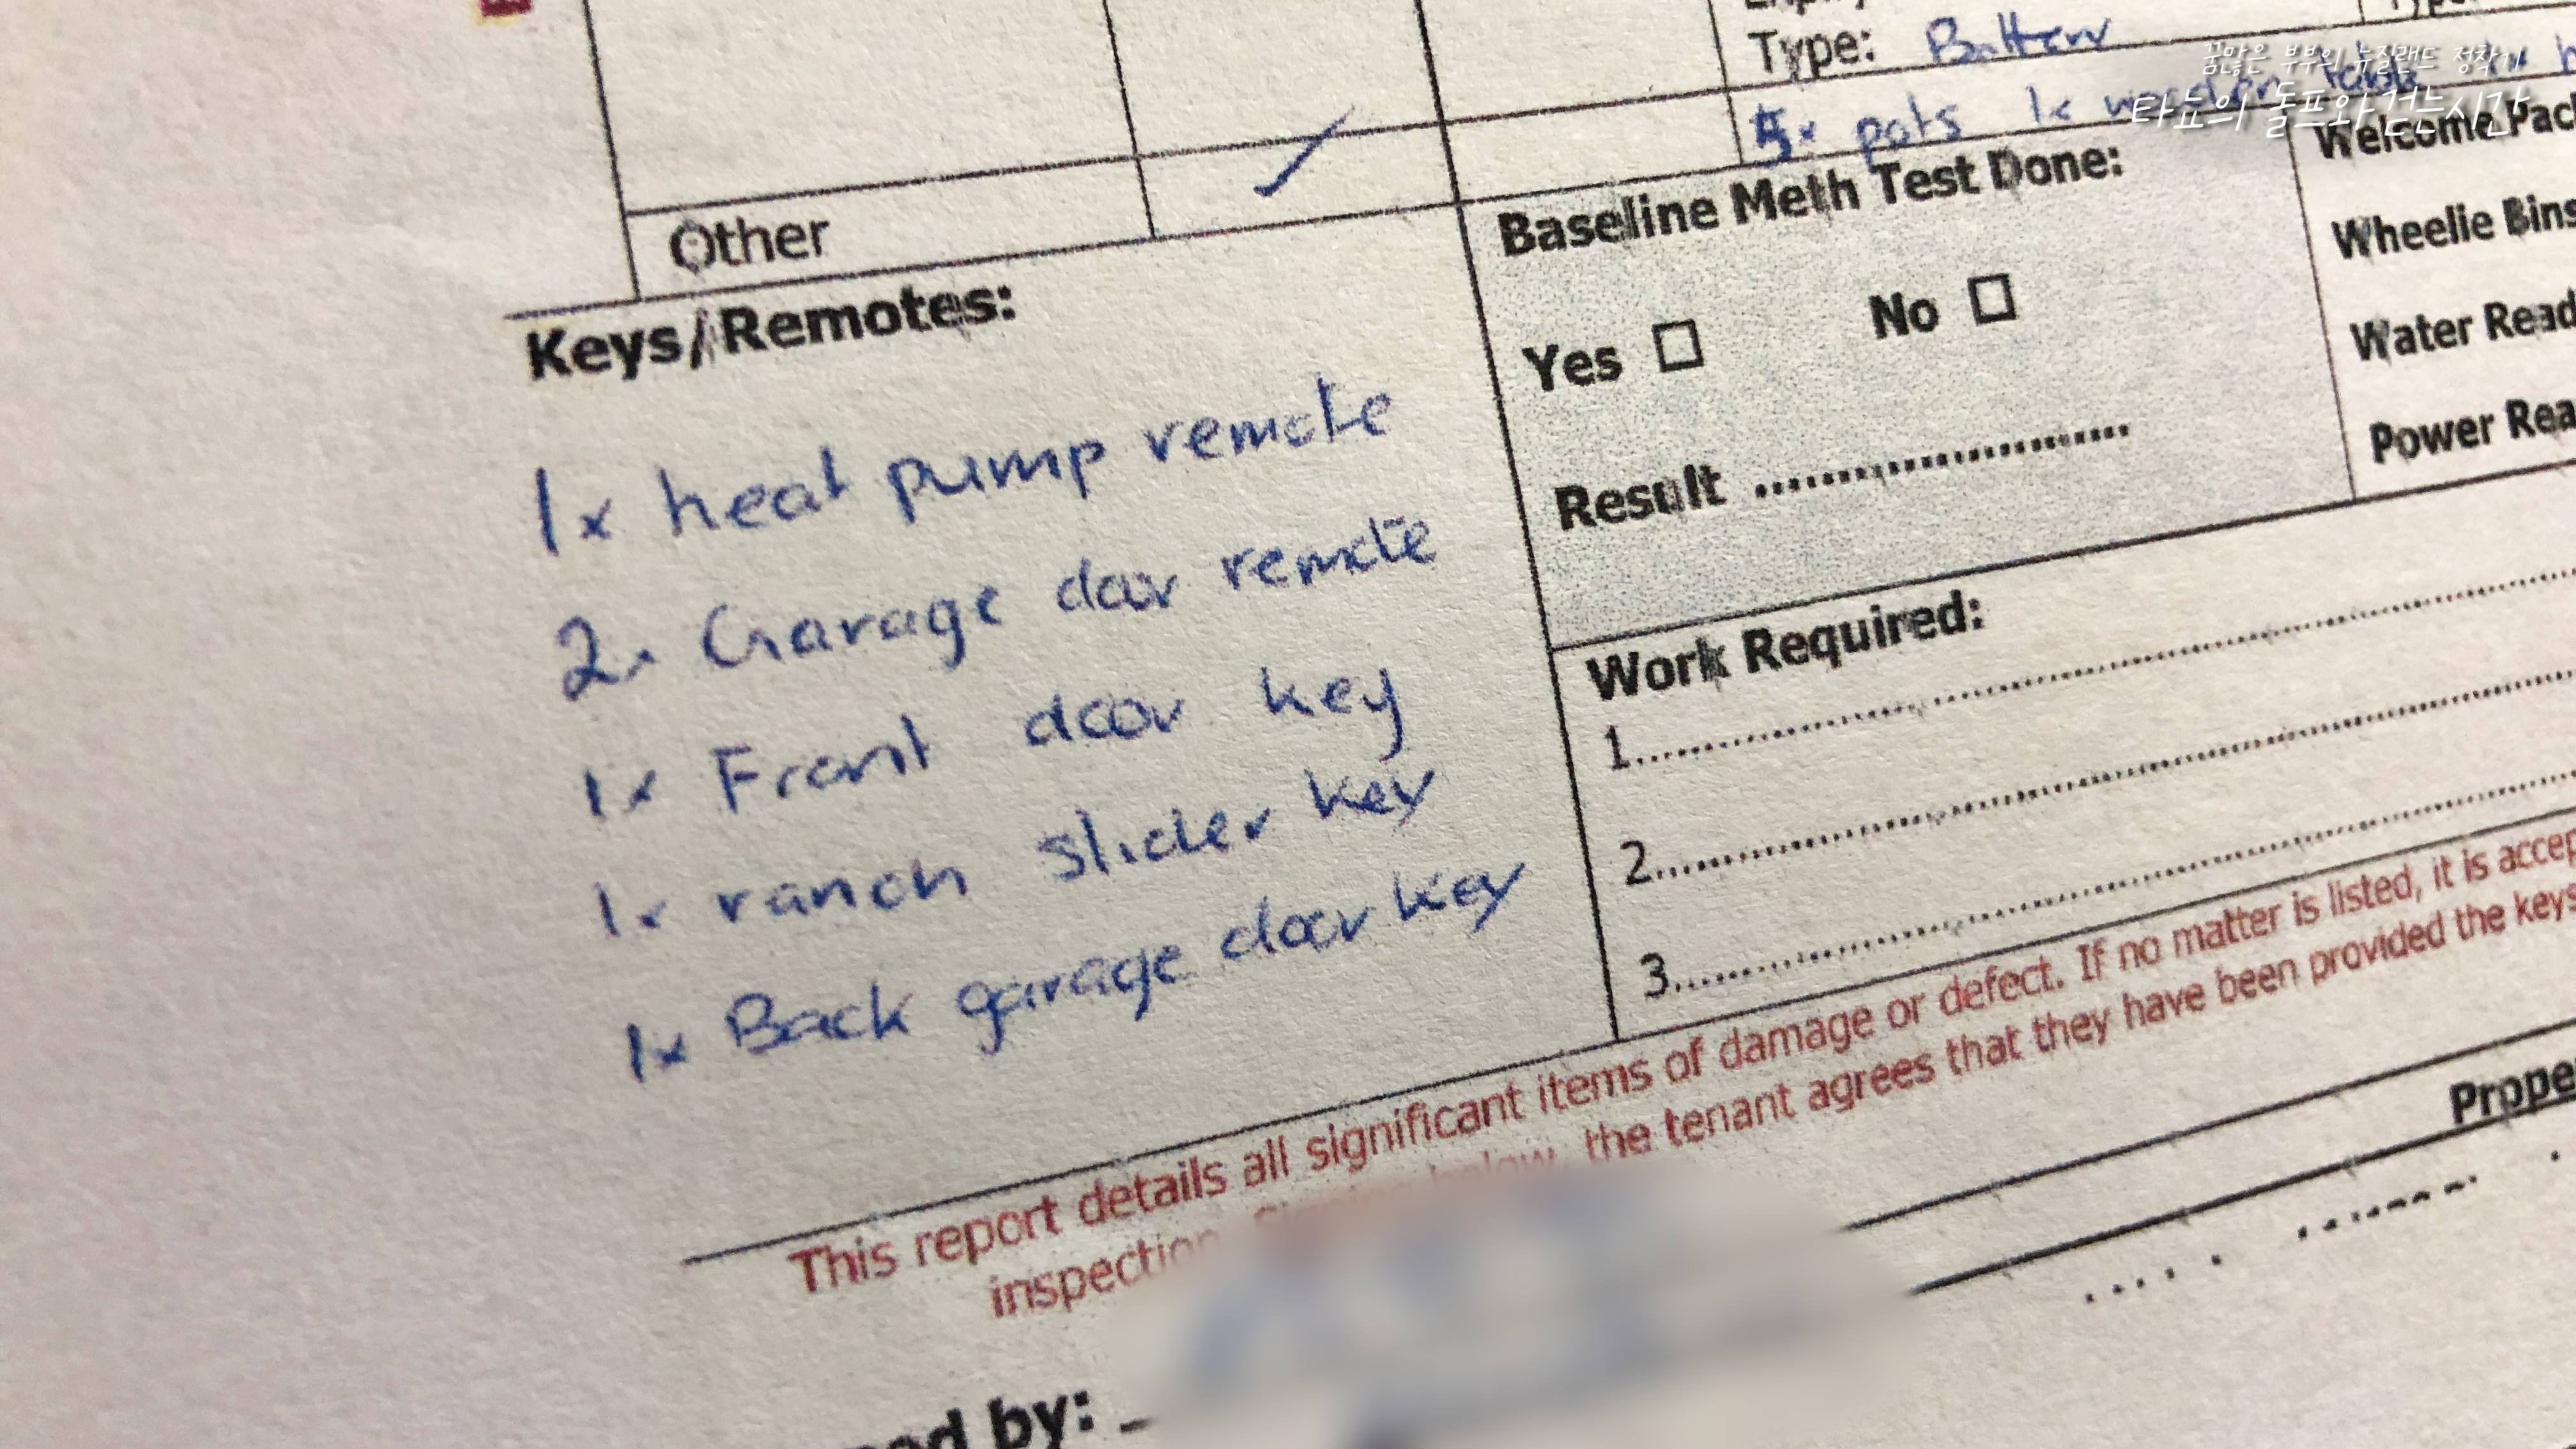 Type: Battery
꿈많은 부부의 뉴질랜드 정착기
타뇨의 돌프와 걷는시간
5x pots 1x wooden table
Other
Baseline Meth Test Done:
Yes No
Result
Welcome Pac
Wheelie Bins
Water Read
Power Rea
Keys/Remotes:
1x heat pump remote
2x Garage door remote
1x Front door key
1x ranch slider key
1x Back garage door key
Work Required:
1
2
3
This report details all significant items of damage or defect. If no matter is listed, it is accep
inspection. Signing below, the tenant agrees that they have been provided the keys
Prope
ed by: